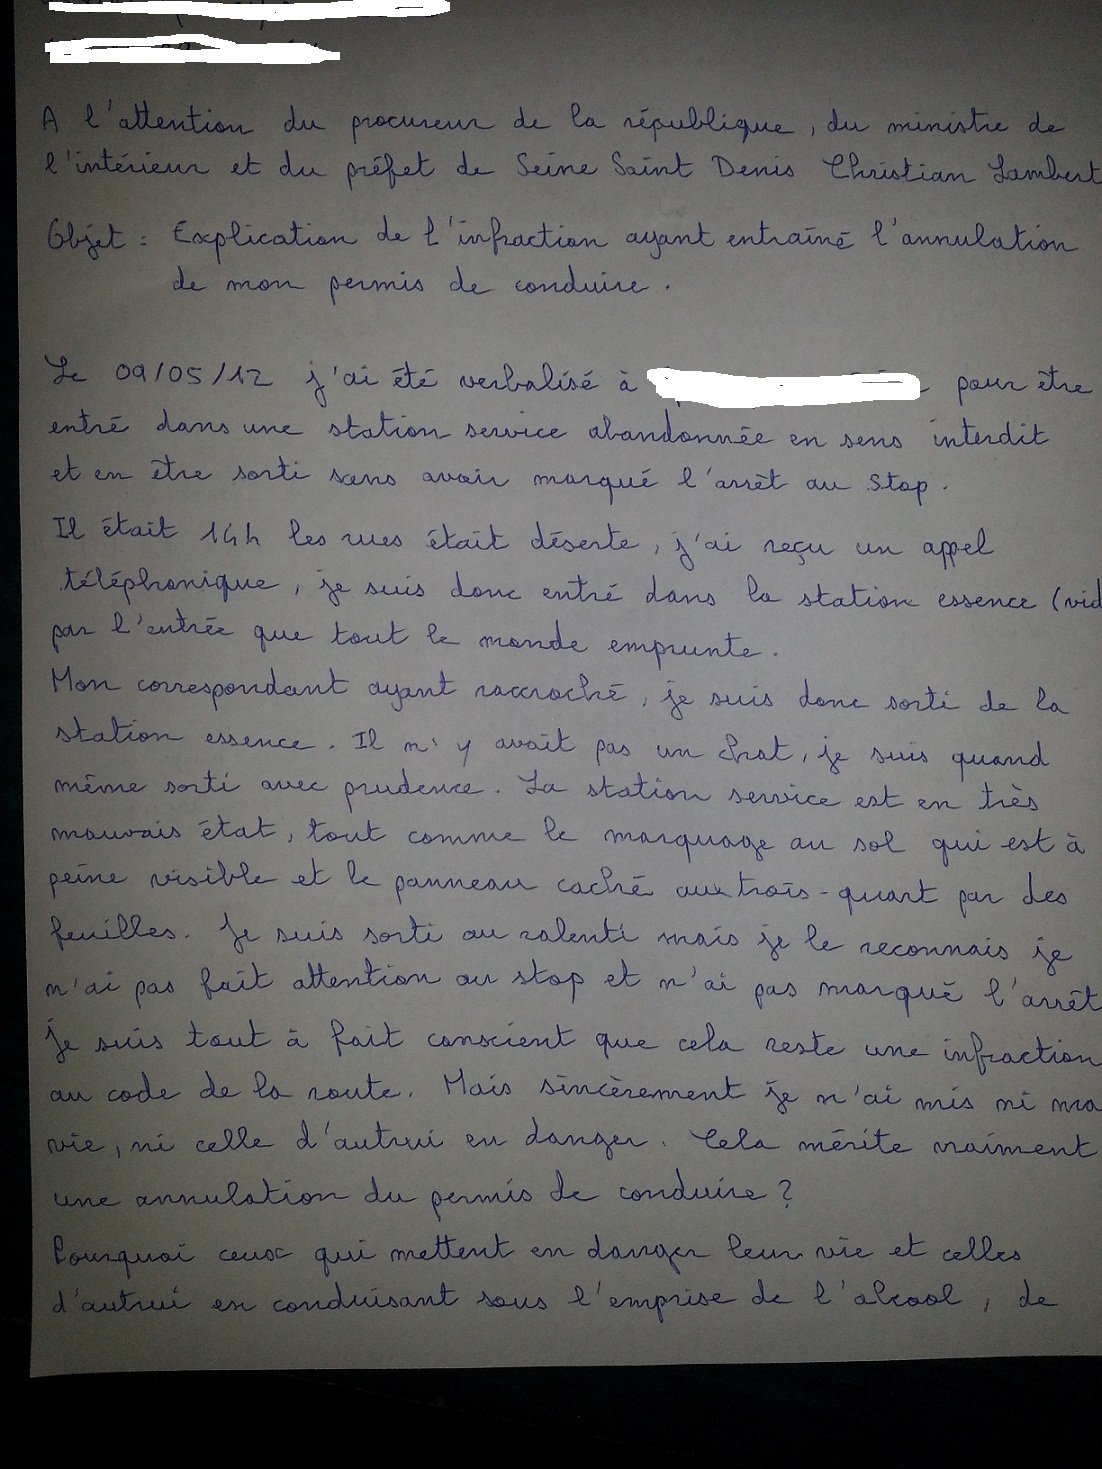 A l'attention du procureur de la république, du ministre de
l'intérieur et du préfet de Seine Saint Denis Christian Lambert
Objet : Explication de l'infraction ayant entraîné l'annulation
de mon permis de conduire.
Le 09/05/12 j'ai été verbalisé à pour être
entré dans une station service abandonnée en sens interdit
et en être sorti sans avoir marqué l'arrêt au Stop.
Il était 14h les rues était déserte, j'ai reçu un appel
téléphonique, je suis donc entré dans la station essence (vid
par l'entrée que tout le monde emprunte.
Mon correspondant ayant raccroché, je suis donc sorti de la
station essence. Il n'y avait pas un chat, je suis quand
même sorti avec prudence. La station service est en très
mauvais état, tout comme le marquage au sol qui est à
peine visible et le panneau caché aux trois-quart par des
feuilles. Je suis sorti au ralenti mais je le reconnais je
n'ai pas fait attention au stop et n'ai pas marqué l'arrêt
je suis tout à fait conscient que cela reste une infraction
au code de la route. Mais sincèrement je n'ai mis ni ma
vie, ni celle d'autrui en danger. Cela mérite vraiment
une annulation du permis de conduire ?
Pourquoi ceux qui mettent en danger leur vie et celles
d'autrui en conduisant sous l'emprise de l'alcool, de